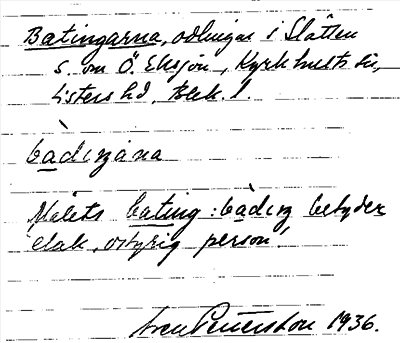 Batingarna, odlingar i Slätten
s. om Ö. Eksjön, Kyrkhults sn,
Listers hd, Blek. l.
bàdıŋána
Målets bating: bàdıŋ betyder
elak, ostyrig person!
Sven Petersson 1936.